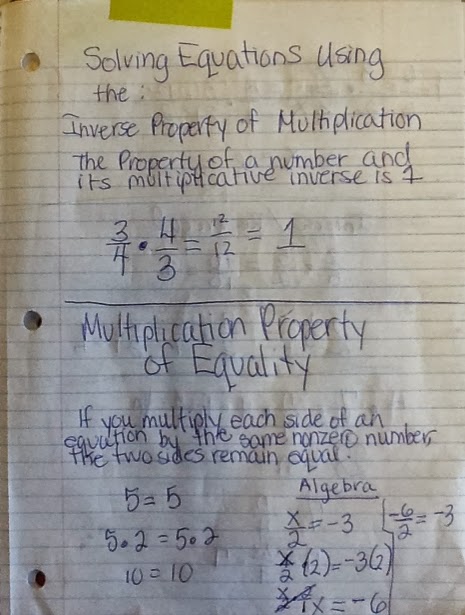 Solving Equations Using
the:
Inverse Property of Multiplication
The Property of a number and
its multiplicative inverse is 1
3/4 • 4/3 = 12/12 = 1
Multiplication Property
of Equality
If you multiply each side of an
equation by the same nonzero number,
the two sides remain equal.
5 = 5
5•2 = 5•2
10 = 10
Algebra
x/2 = -3
x/2 (2) = -3(2)
x = -6
-6/2 = -3